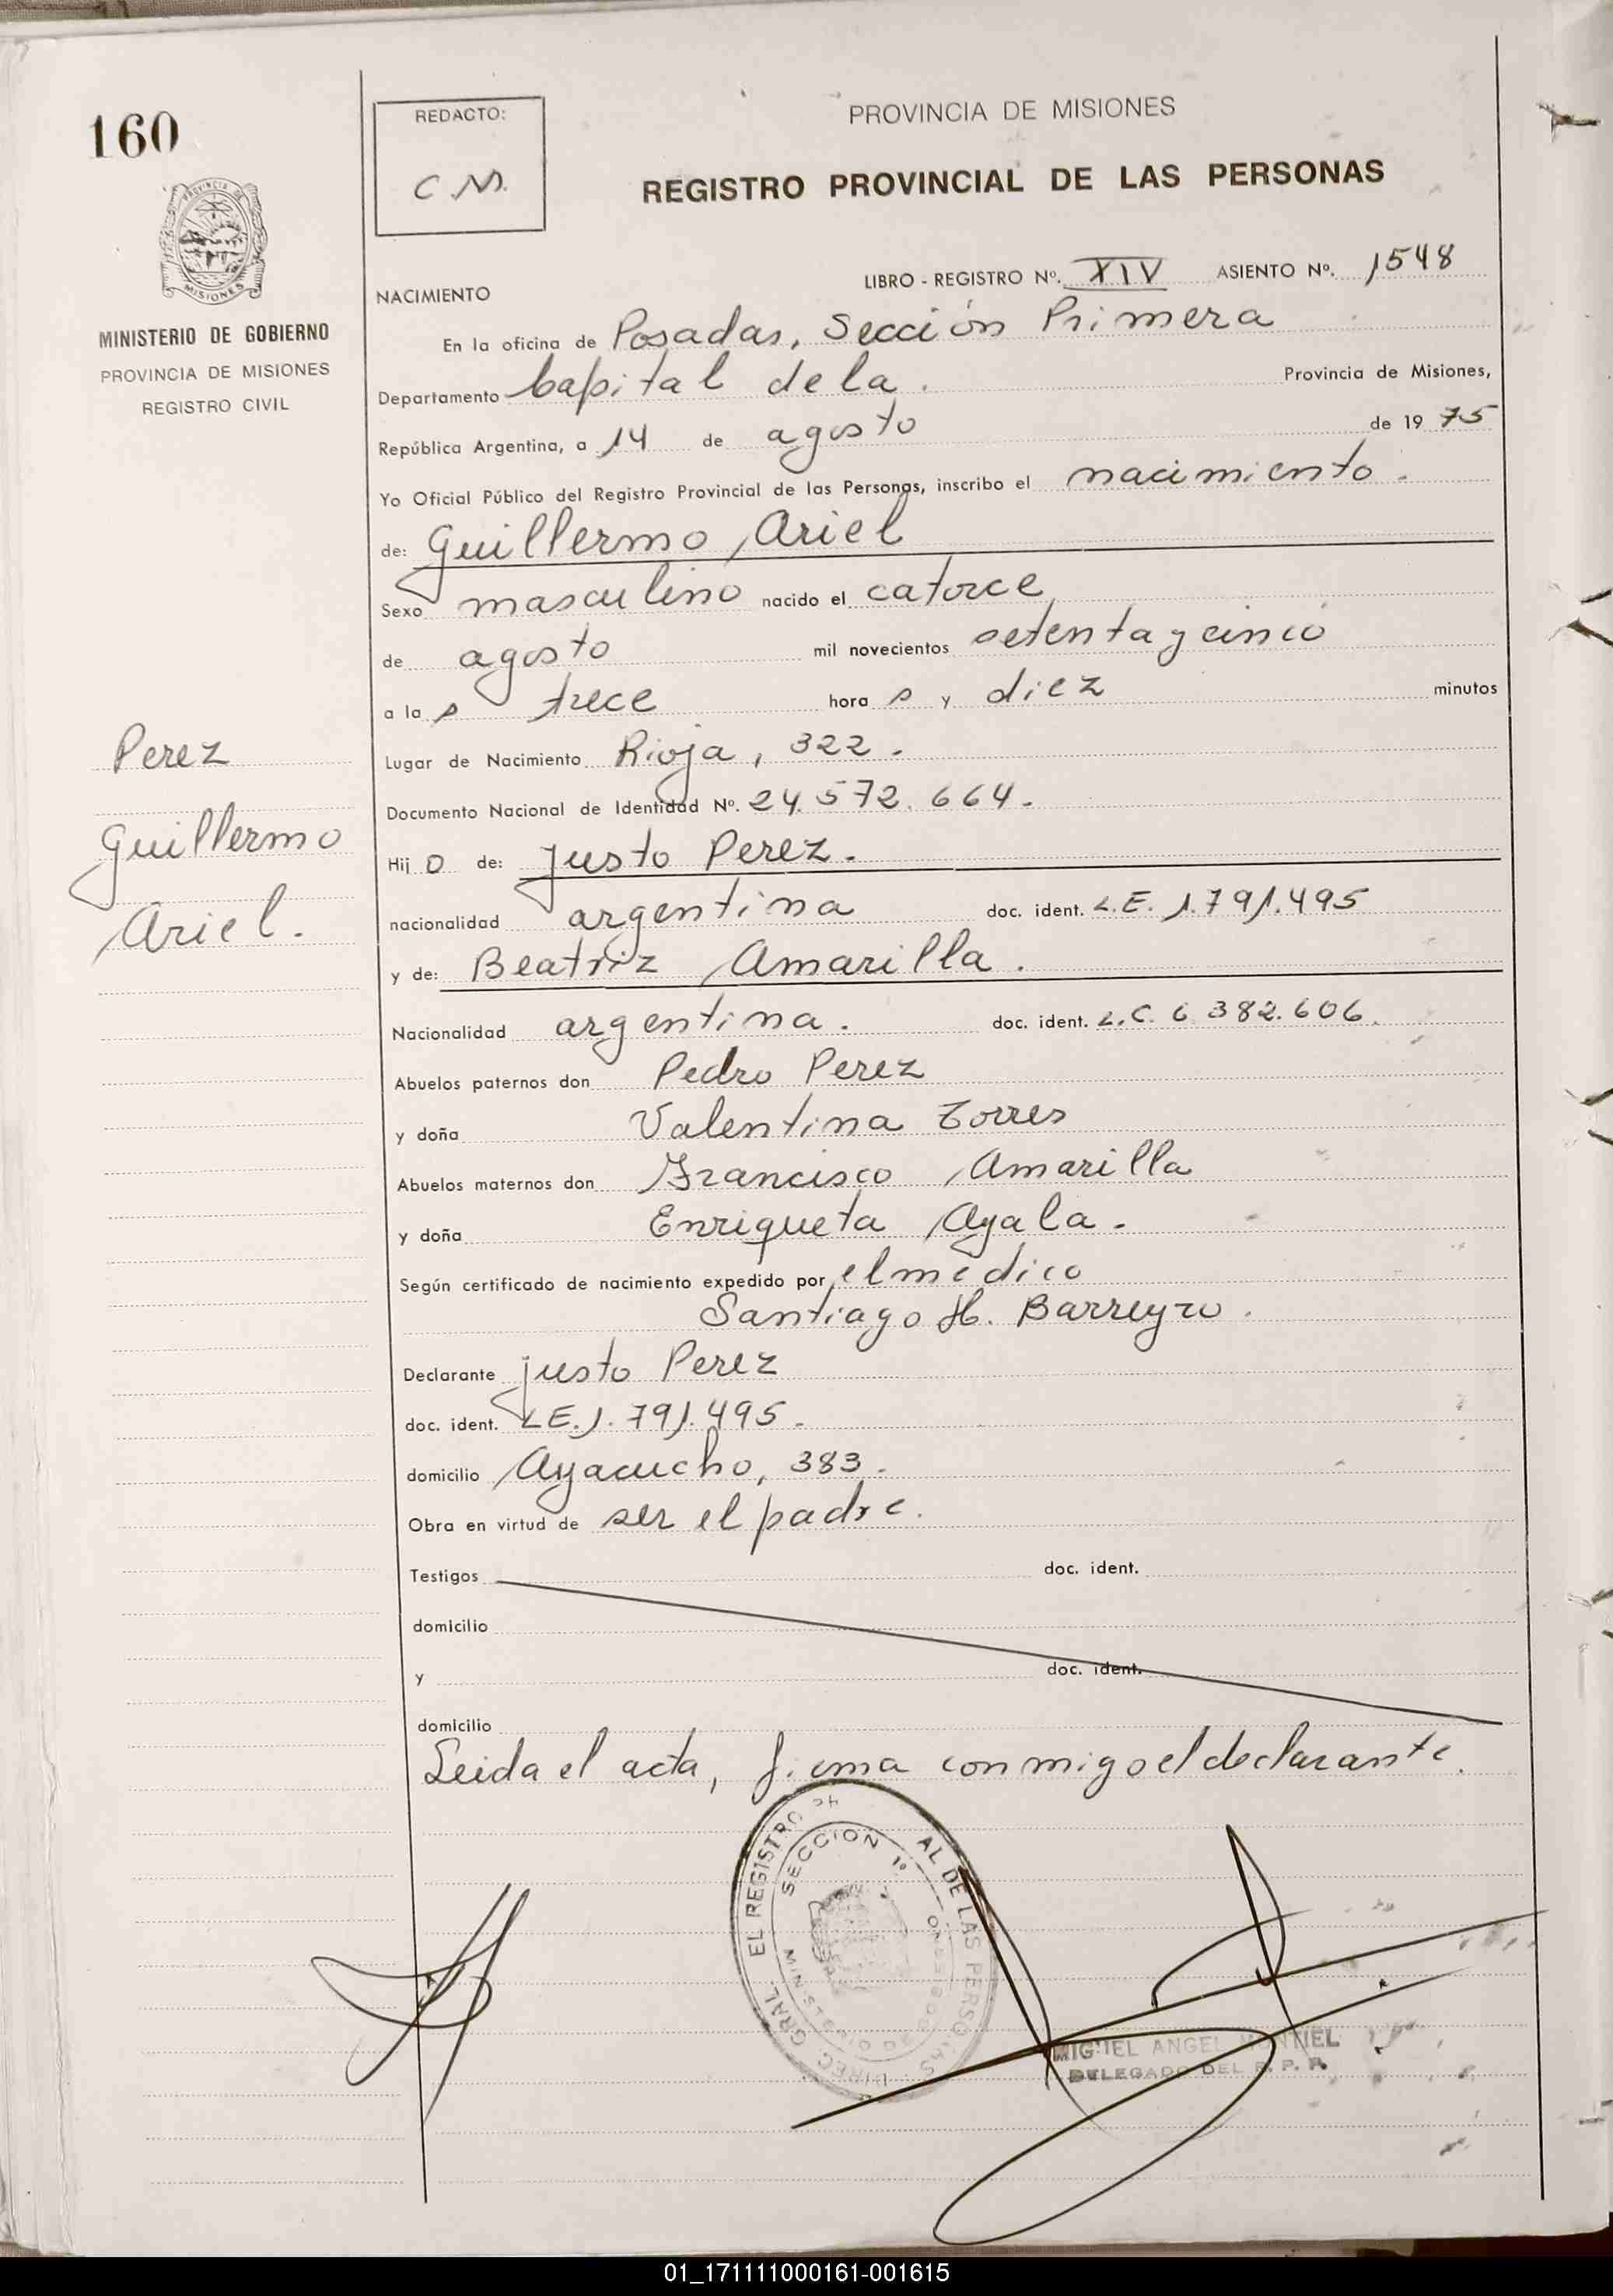 160
REDACTO:
C.M.
PROVINCIA DE MISIONES
REGISTRO PROVINCIAL DE LAS PERSONAS
MISIONES
MINISTERIO DE GOBIERNO
PROVINCIA DE MISIONES
REGISTRO CIVIL
LIBRO - REGISTRO Nº. XIV ASIENTO Nº. 1548
NACIMIENTO
En la oficina de Posadas, Sección Primera
Departamento Capital de la. Provincia de Misiones,
República Argentina, a 14 de agosto de 1975
Yo Oficial Público del Registro Provincial de las Personas, inscribo el nacimiento.
de: Guillermo Ariel
Sexo masculino nacido el catorce
de agosto mil novecientos setenta y cinco
a las trece horas y diez minutos
Lugar de Nacimiento Rioja, 322.
Documento Nacional de Identidad Nº. 24.572.664.
Hijo de: Justo Perez.
nacionalidad argentina doc. ident. L.E. 1.791.495
y de: Beatriz Amarilla.
Nacionalidad argentina. doc. ident. L.C. 6.382.606.
Abuelos paternos don Pedro Perez
y doña Valentina Torres
Abuelos maternos don Francisco Amarilla
y doña Enriqueta Ayala.
Según certificado de nacimiento expedido por el médico
Santiago H. Barreyro.
Declarante Justo Perez
doc. ident. L.E. 1.791.495.
domicilio Ayacucho, 383.
Obra en virtud de ser el padre.
Testigos doc. ident.
domicilio
y doc. ident.
domicilio
Leida el acta, firma conmigo el declarante.
Perez
Guillermo
Ariel.
DIREC. GRAL. EL REGISTRO AL DE LAS PERSONAS
SECCION 1º
MINISTERIO DE GOBIERNO
MIGUEL ANGEL MONTIEL
DELEGADO DEL R. P. P.
01_171111000161-001615